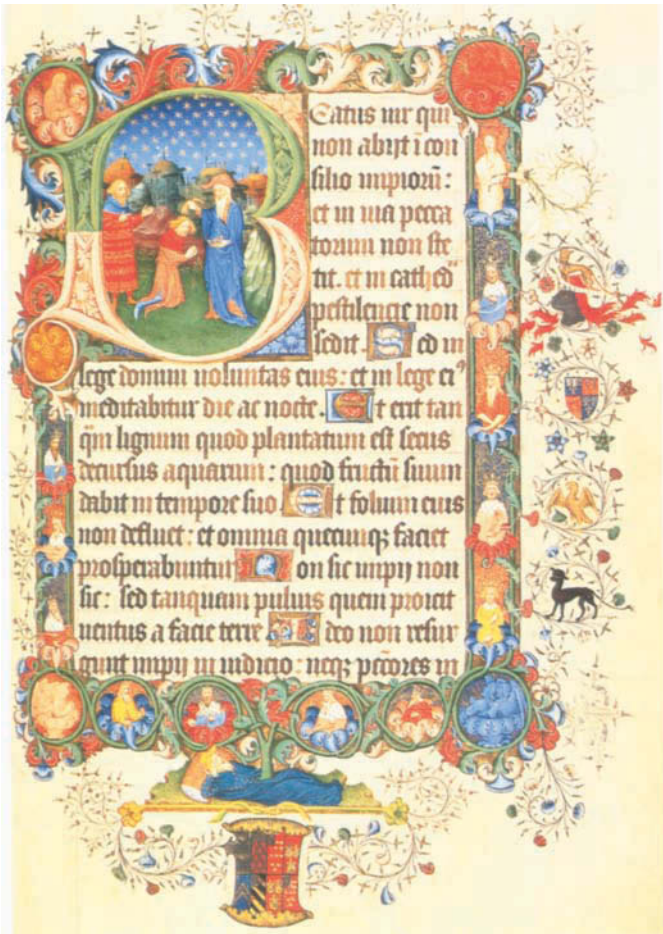 Beatus uir qui
non abijt ī con
silio impiorū :
et in uia pecca
torum non ste
tit. et in cathed
pestilencie non
sedit. Sed in
lege domini uoluntas eius : et in lege ei⁹
meditabitur die ac nocte. Et erit tan
q̄m lignum quod plantatum est secus
decursus aquarum : quod fructū suum
dabit in tempore suo Et folium eius
non defluet : et omnia quecumqꝫ faciet
prosperabuntur Non sic impij non
sic : sed tanquam puluis quem proicit
uentus a facie terre Ideo non resur
gunt impij in iudicio : neqꝫ pcc̄ores in